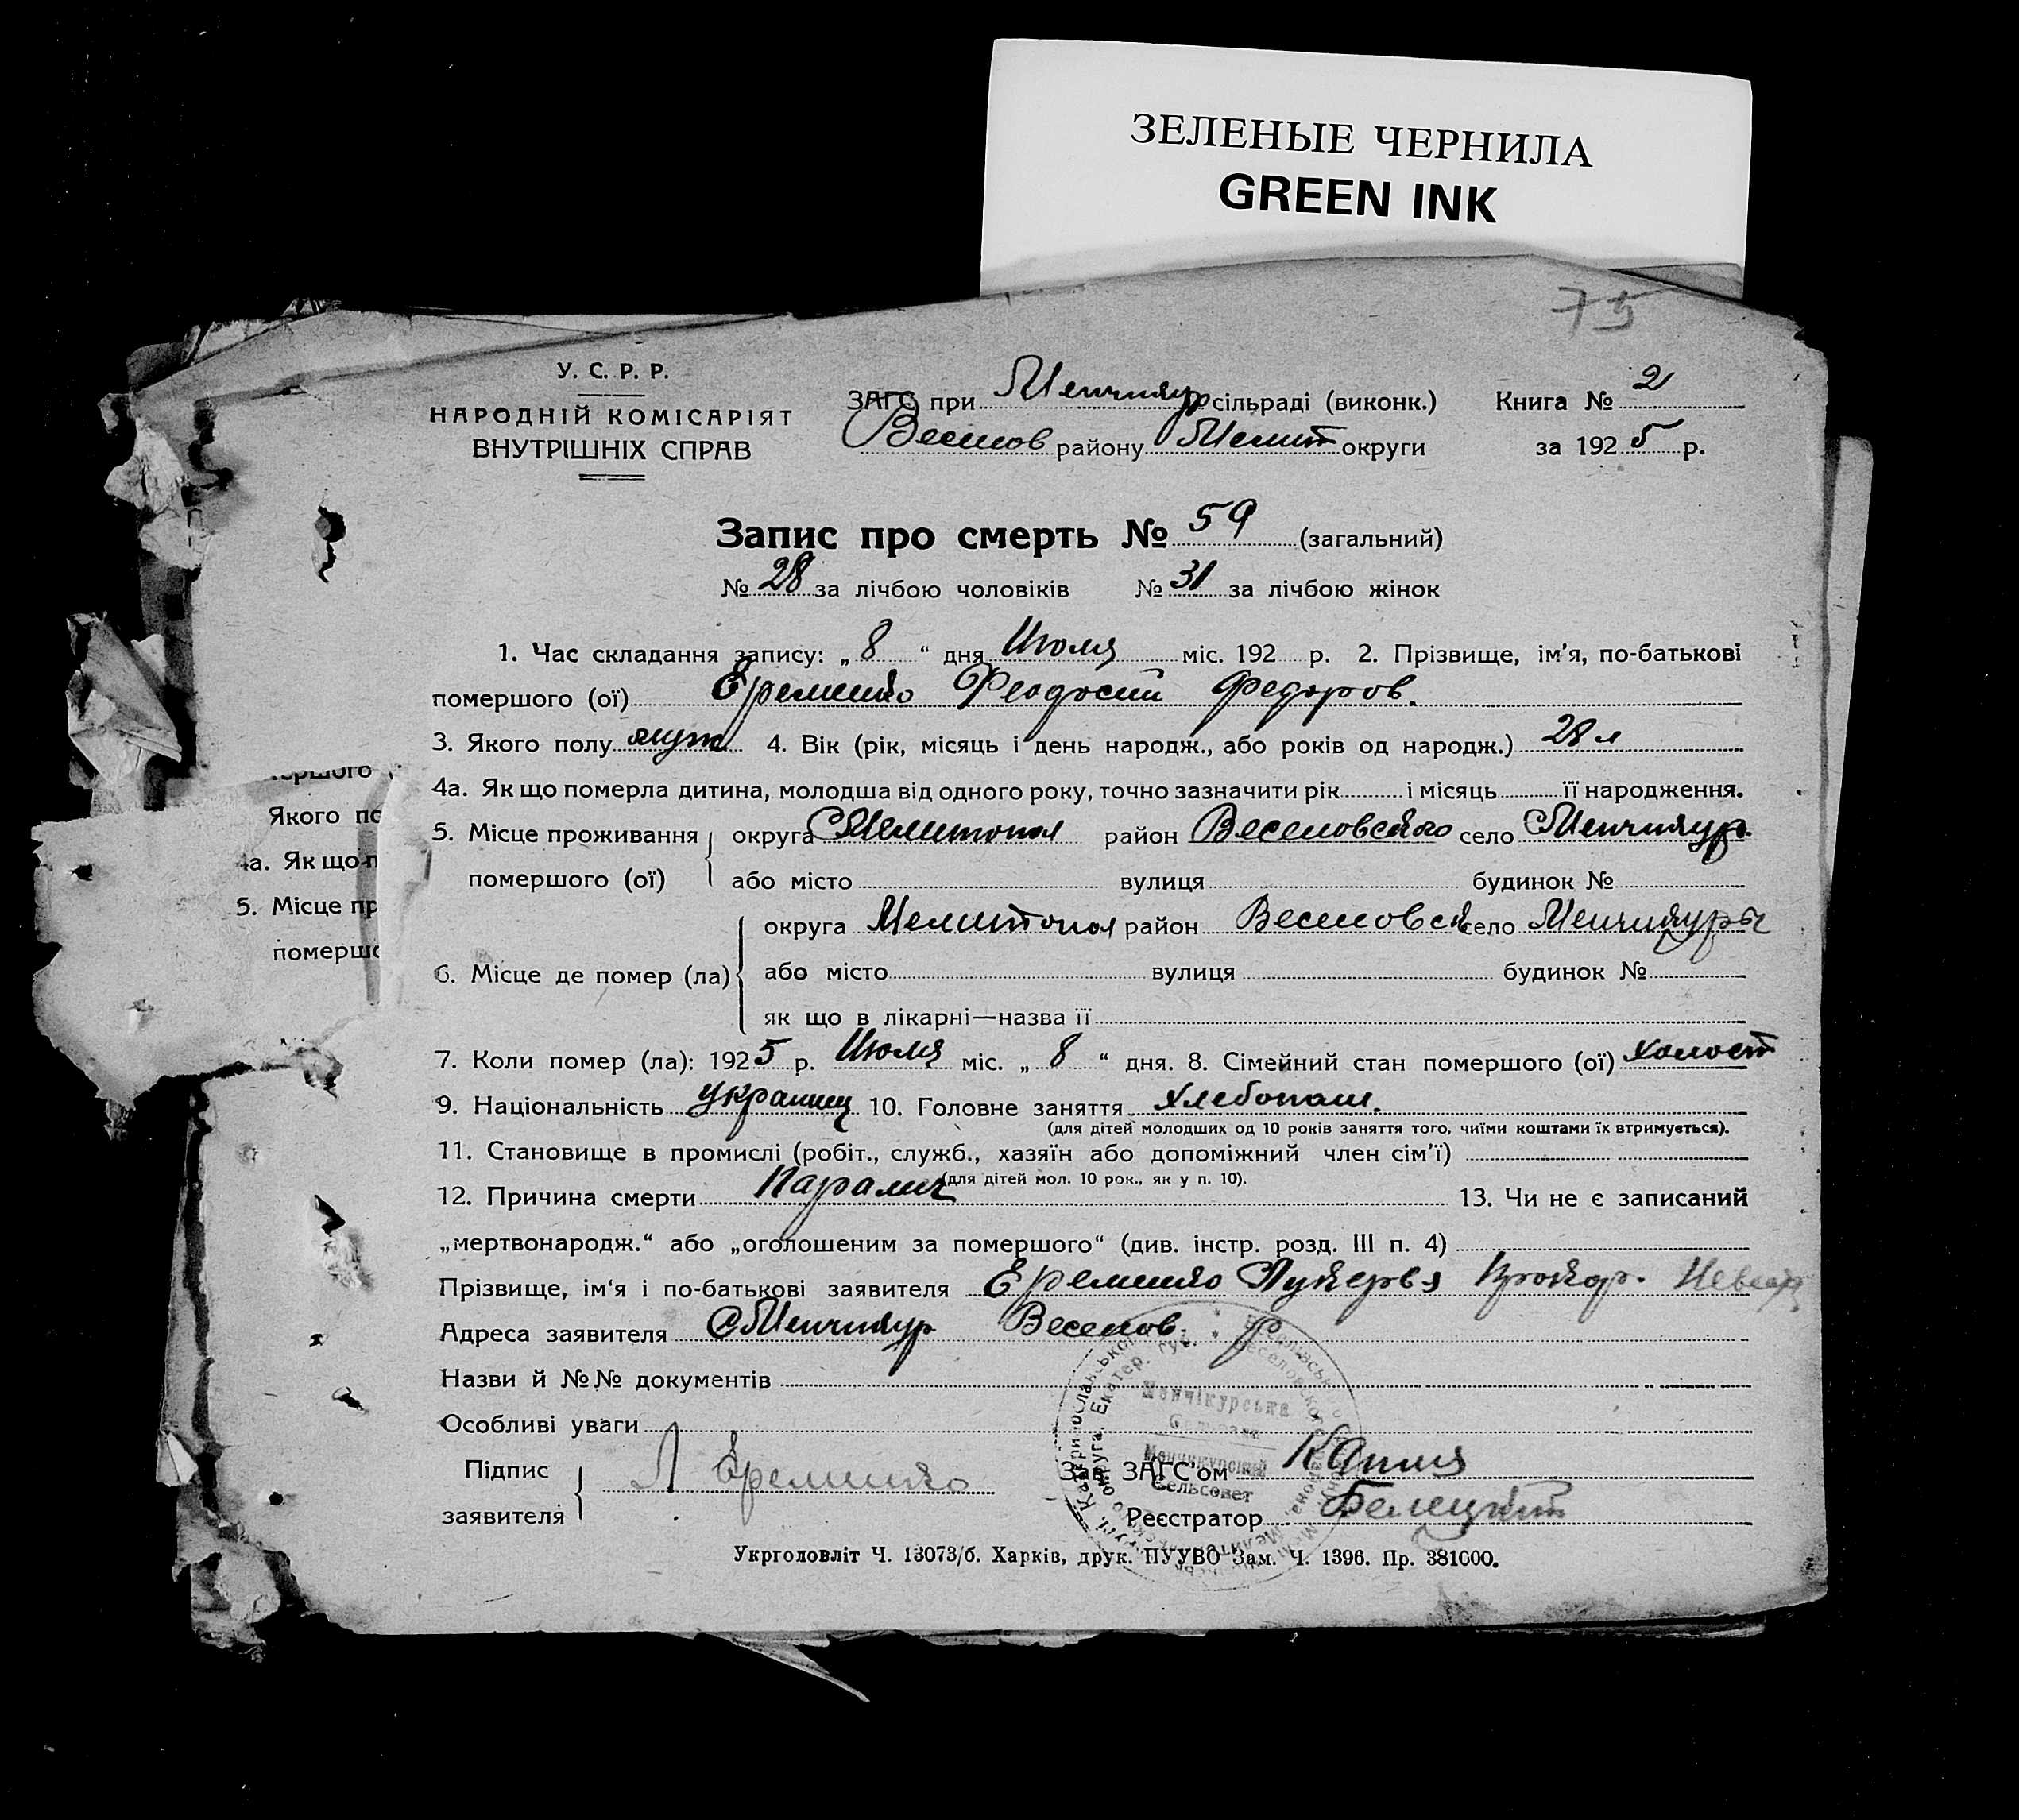 ЗЕЛЕНЫЕ ЧЕРНИЛА
GREEN INK
75
У. С. Р. Р.
НАРОДНІЙ КОМІСАРІЯТ
ВНУТРІШНІХ СПРАВ
ЗАГС при Менчикур сільраді (виконк.) Книга № 2
Весел​ов району Мелит округи за 1925 р.
Запис про смерть № 59 (загальний)
№ 28 за лічбою чоловіків № 31 за лічбою жінок
1. Час складання запису: „ 8 “ дня Июля міс. 192 р. 2. Прізвище, ім’я, по-батькові
помершого (ої) Еременко Феодосий Федоров.
3. Якого полу муж 4. Вік (рік, місяць і день народж., або років од народж.) 28 л
4а. Як що померла дитина, молодша від одного року, точно зазначити рік і місяць її народження.
5. Місце проживання округа Мелитопол район Веселовского село Менчикур
помершого (ої) або місто вулиця будинок №
округа Мелитопол район Веселовск село Менчикуры
6. Місце де помер (ла) або місто вулиця будинок №
як що в лікарні—назва її
7. Коли помер (ла): 1925 р. Июля міс. „ 8 “ дня. 8. Сімейний стан помершого (ої) холост
9. Національність украинец 10. Головне заняття хлебопаш.
(для дітей молодших од 10 років заняття того, чиїми коштами їх втримується).
11. Становище в промислі (робіт., служб., хазяїн або допоміжний член сім’ї)
(для дітей мол. 10 рок., як у п. 10).
12. Причина смерти Паралич 13. Чи не є записаний
„мертвонародж.“ або „оголошеним за помершого“ (див. інстр. розд. III п. 4)
Прізвище, ім’я і по-батькові заявителя Еременко Лукерья
Адреса заявителя С Менчикур Веселов. р
Назви й №№ документів
Особливі уваги
Підпис
заявителя Л Еременко
Менчікурська
Менчикурский
Сельсовет
Зав. ЗАГС’ом
Реєстратор Белецкий
Укрголовліт Ч. 13073/б. Харків, друк. ПУУВО Зам. Ч. 1396. Пр. 381000.
ершого
Якого по
4а. Як що п
5. Місце пр
помершо